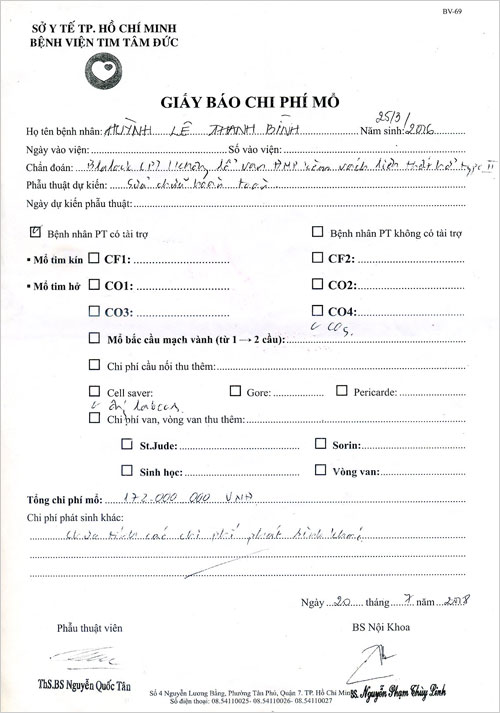 BV-69
SỞ Y TẾ TP. HỒ CHÍ MINH
BỆNH VIỆN TIM TÂM ĐỨC
GIẤY BÁO CHI PHÍ MỔ
Họ tên bệnh nhân: HUỲNH LÊ THANH BÌNH Năm sinh: 25/3/2016
Ngày vào viện: Số vào viện:
Chẩn đoán: type II
Phẫu thuật dự kiến: Sửa chữa hoàn toàn
Ngày dự kiến phẫu thuật:
Bệnh nhân PT có tài trợ Bệnh nhân PT không có tài trợ
▪ Mổ tim kín CF1: CF2:
▪ Mổ tim hở CO1: CO2:
CO3: CO4:
Mổ bắc cầu mạch vành (từ 1 → 2 cầu):
Chi phí cầu nối thu thêm:
Cell saver: Gore: Pericarde:
Chi phí van, vòng van thu thêm:
St.Jude: Sorin:
Sinh học: Vòng van:
Tổng chi phí mổ: 172.000 000 VNĐ
Chi phí phát sinh khác:
chưa tính các chi phí phát sinh khác
Ngày 20 tháng 7 năm 2018
Phẫu thuật viên BS Nội Khoa
ThS.BS Nguyễn Quốc Tân BS. Nguyễn Phạm Thùy Linh
Số 4 Nguyễn Lương Bằng, Phường Tân Phú, Quận 7. TP. Hồ Chí Minh
Số điện thoại: 08.54110025- 08.54110026- 08.54110027